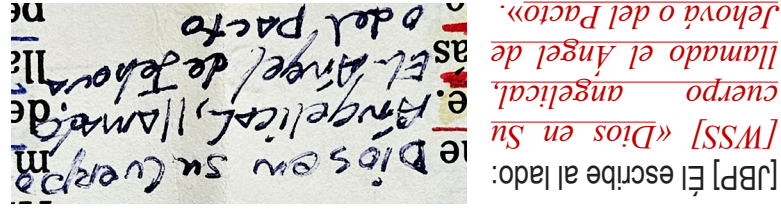 [JBP] Él escribe al lado:
[WSS] «Dios en Su
cuerpo angelical,
llamado el Ángel de
Jehová o del Pacto».
Dios en su Cuerpo
Angelical, llamado
El Ángel de Jehova
o del pacto